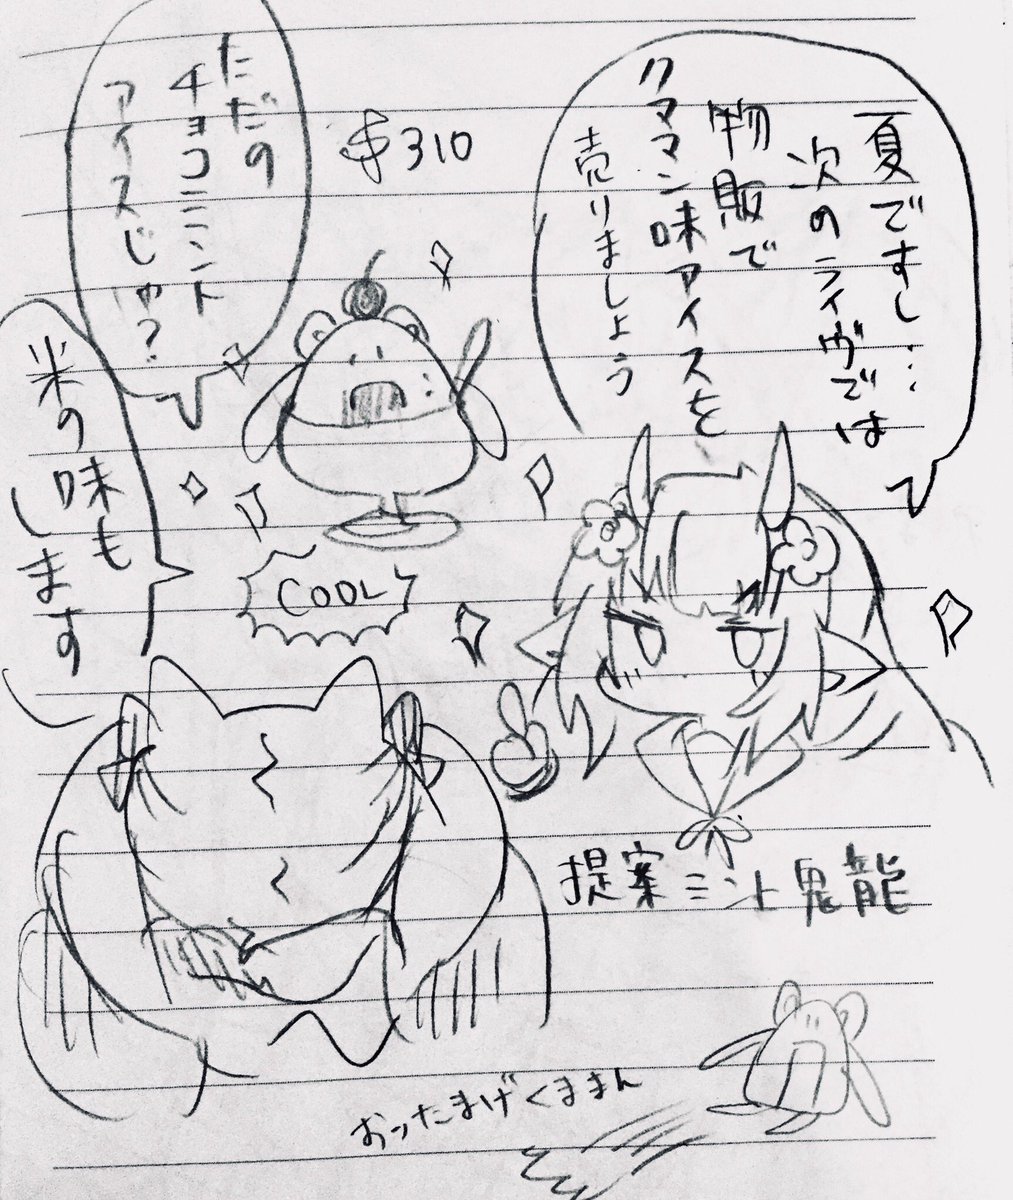 夏ですし…
次のライヴでは
物販で
クママン味アイスを
売りましょう
$310
ただの
チョコミント
アイスじゃ?
米の味も
します
COOL
提案=ミント鬼龍
おったまげくままん